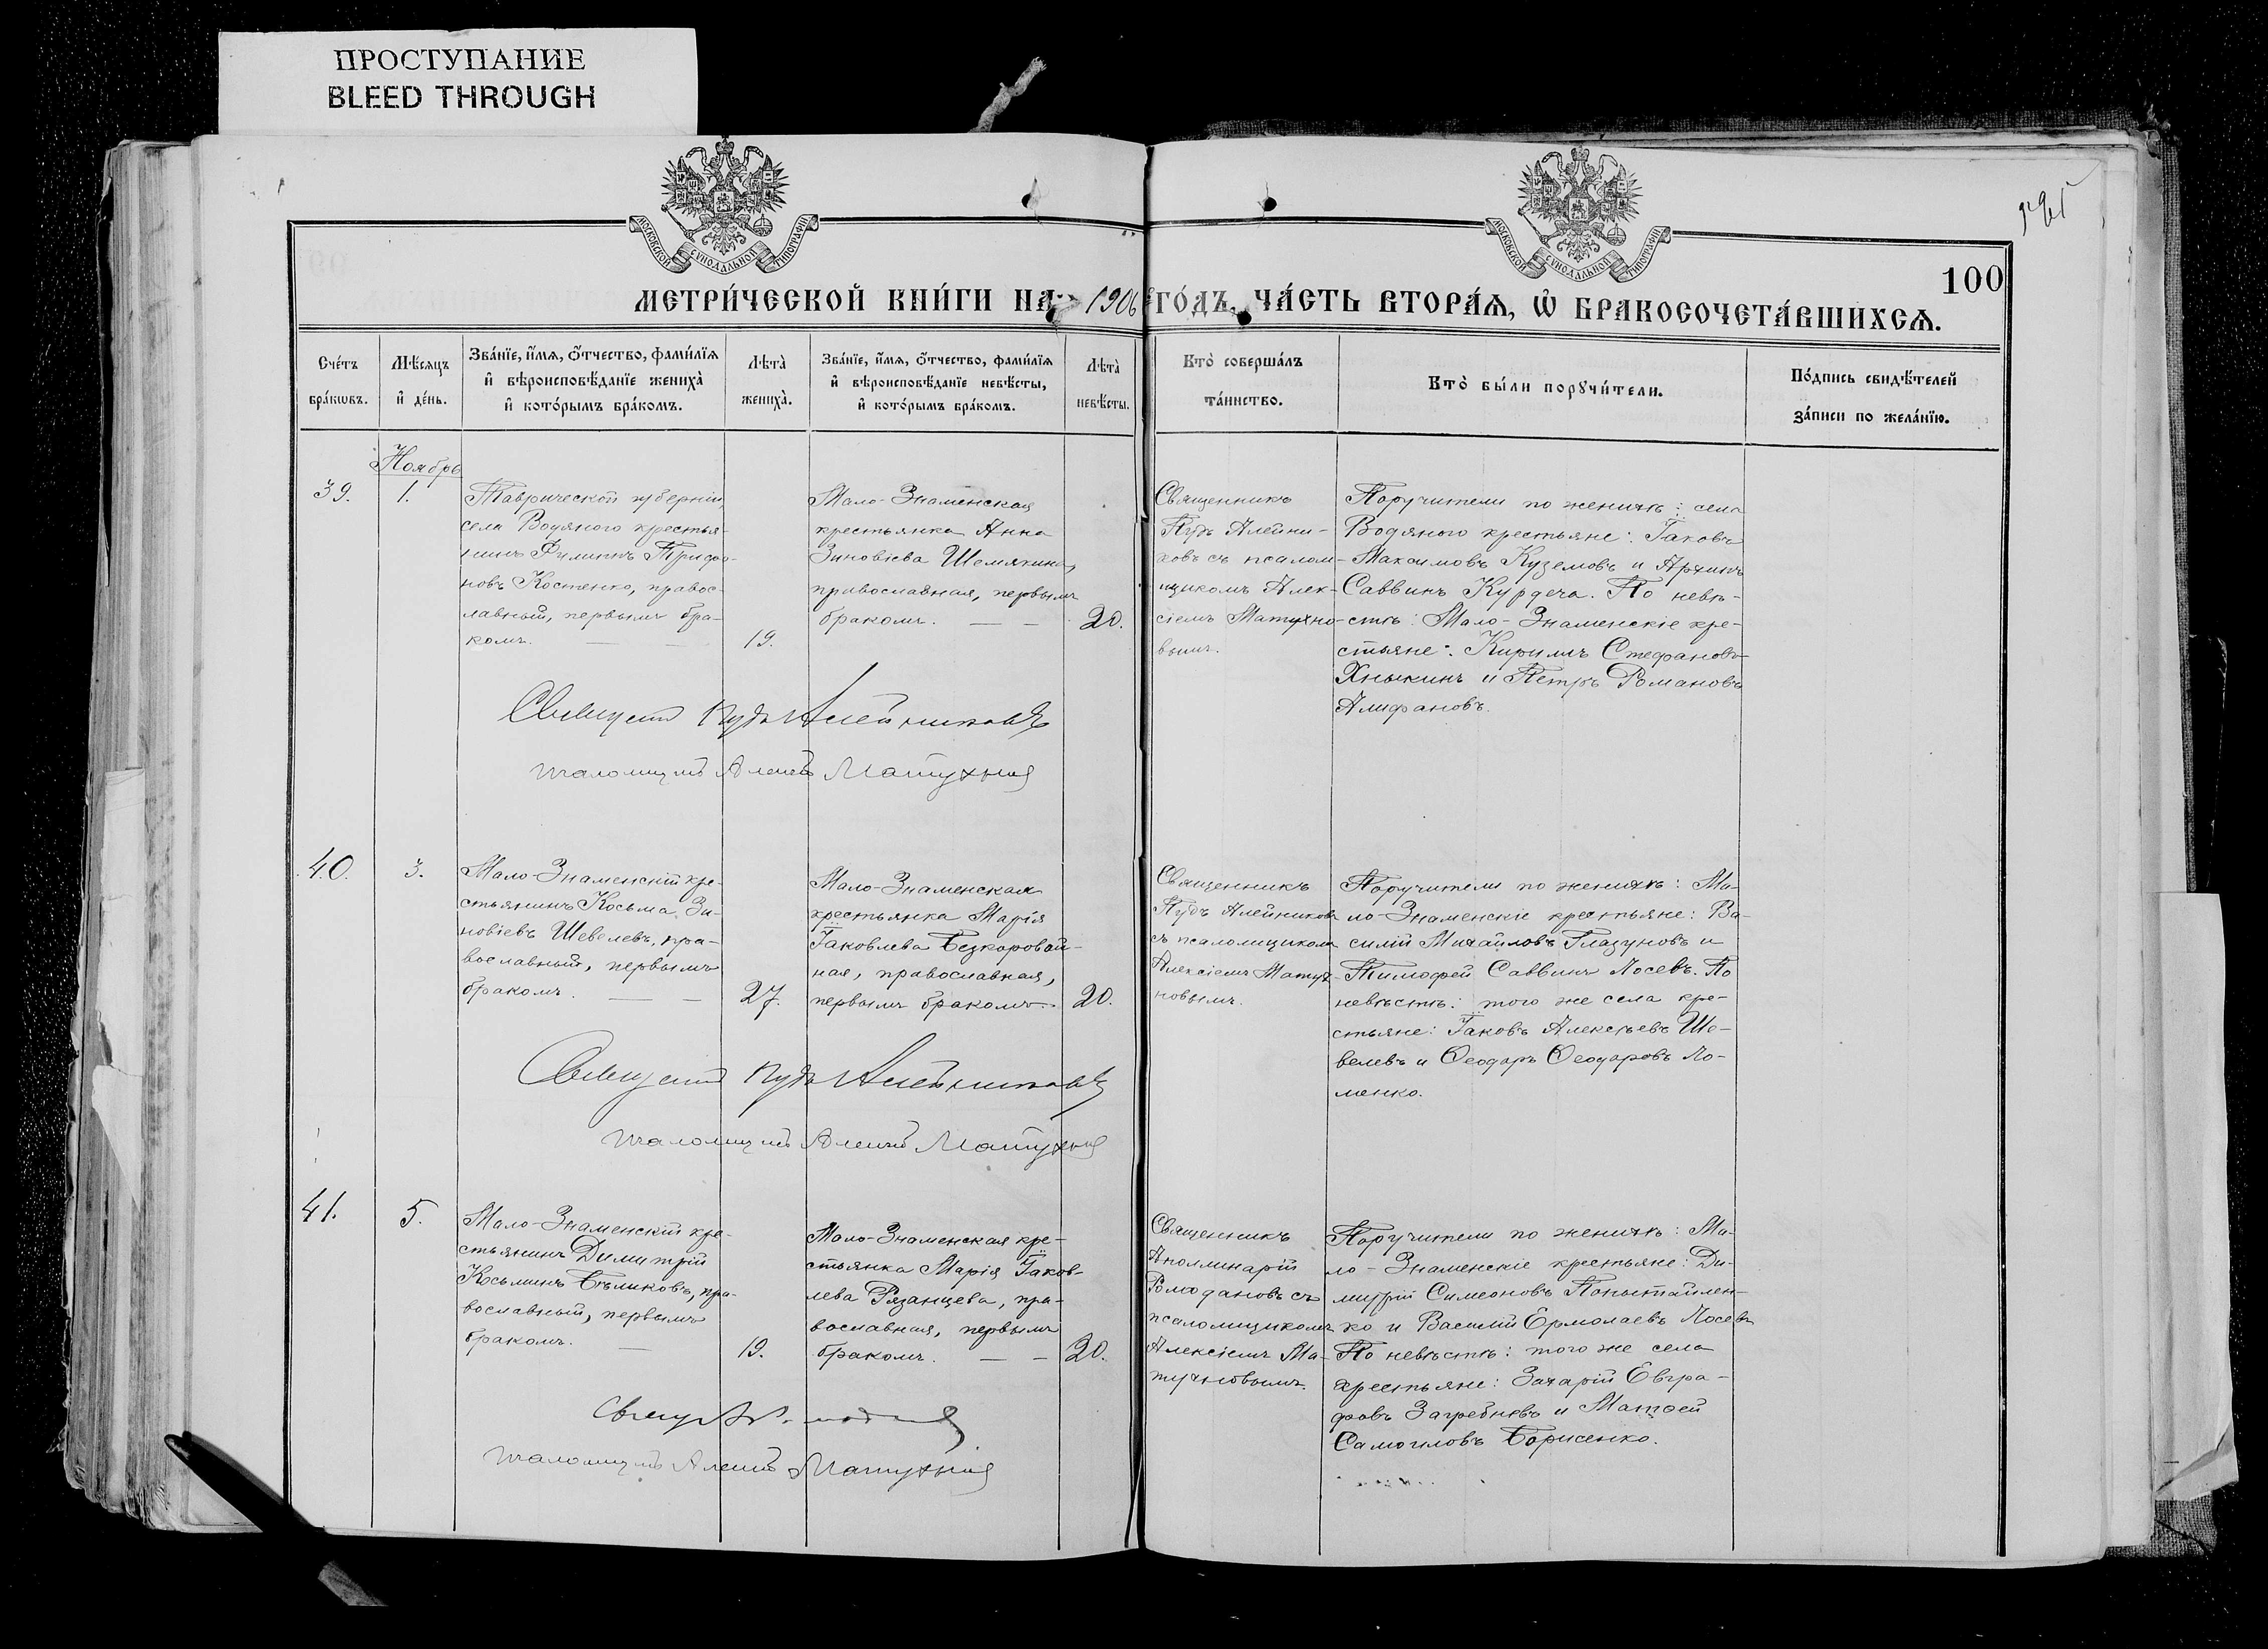 ПРОСТУПАНИЕ
BLEED THROUGH
МОСКОВСКОЙ СѴНОДАЛЬНОЙ ТИПОГРАФІИ
МОСКОВСКОЙ СѴНОДАЛЬНОЙ ТИПОГРАФІИ
100
МЕТРИ́ЧЕСКОЙ КНИ́ГИ НА 1906 ГО́ДЪ, ЧА́СТЬ ВТОРА́Ѧ, Ѽ БРАКОСОЧЕТА́ВШИХСѦ.
Сче́тъ
бра́кѡвъ.
Мѣ́сяцъ
и҆ де́нь.
Зва́нїе, и҆́мѧ, ѻ҆́тчество, фами́лїѧ
и҆ вѣроисповѣ́данїе жениха̀
и҆ кото́рымъ бра́комъ.
Лѣта̀
жениха̀.
Зва́нїе, и҆́мѧ, ѻ҆́тчество, фами́лїѧ
и҆ вѣроисповѣ́данїе невѣ́сты,
и҆ кото́рымъ бра́комъ.
Лѣта̀
невѣ́сты.
Кто̀ соверша́лъ
та́инство.
Кто̀ бы́ли порꙋчи́тели.
По́дпись свидѣ́телей
за́писи по жела́нїю.
Ноябрь
39.
1.
Таврической губерніи,
села Водяного крестья-
нинъ Филиппъ Трифо-
новъ Костенко, правос-
лавный, первымъ бра-
комъ. — —
19.
Мало-Знаменская
крестьянка Анна
Зиновіева Шемякина,
православная, первымъ
бракомъ. — —
20.
Священникъ
Пудъ Алейни-
ковъ съ псалом-
щикомъ Алек-
сіемъ Матухно-
вымъ.
Поручители по женихѣ: села
Водяного крестьяне: Іаковъ
Максимовъ Куземовъ и Архипъ
Саввинъ Курдеча. По невѣ-
стѣ: Мало-Знаменскіе кре-
стьяне: Кириллъ Стефановъ
Хныкинъ и Петръ Романовъ
Алифановъ.
Священ Пудъ Алейниковъ
псаломщикъ Алексій Матухновъ
40.
3.
Мало-Знаменскій кре-
стьянинъ Косьма Зи-
новіевъ Шевелевъ, пра-
вославный, первымъ
бракомъ. — —
27.
Мало-Знаменская
крестьянка Марія
Іаковлева Безкоровай-
ная, православная,
первымъ бракомъ.
20.
Священникъ
Пудъ Алейниковъ
съ псаломщикомъ
Алексіемъ Матух-
новымъ.
Поручители по женихѣ: Ма-
ло-Знаменскіе крестьяне: Ва-
силій Михайловъ Глазуновъ и
Тимофей Саввинъ Лосевъ. По
невѣстѣ: того же села кре-
стьяне: Іаковъ Алексѣевъ Ше-
велевъ и Ѳеодоръ Ѳеодоровъ Ло-
менко.
Священ Пудъ Алейниковъ
псаломщикъ Алексій Матухновъ
41.
5.
Мало-Знаменскій кре-
стьянинъ Димитрій
Косьминъ Бѣликовъ, пра-
вославный, первымъ
бракомъ. —
19.
Мало-Знаменская кре-
стьянка Марія Іаков-
лева Рязанцева, пра-
вославная, первымъ
бракомъ. — —
20.
Священникъ
Аполлинарій
Ромодановъ съ
псаломщикомъ
Алексіемъ Ма-
тухновымъ.
Поручители по женихѣ: Ма-
ло-Знаменскіе крестьяне: Ди-
митрій Симеоновъ Попытайлен-
ко и Василій Ермолаевъ Лосевъ
По невѣстѣ: того же села
крестьяне: Захарій Евгра-
фовъ Загребневъ и Матѳей
Самоиловъ Борисенко.
псаломщикъ Алексій Матухновъ